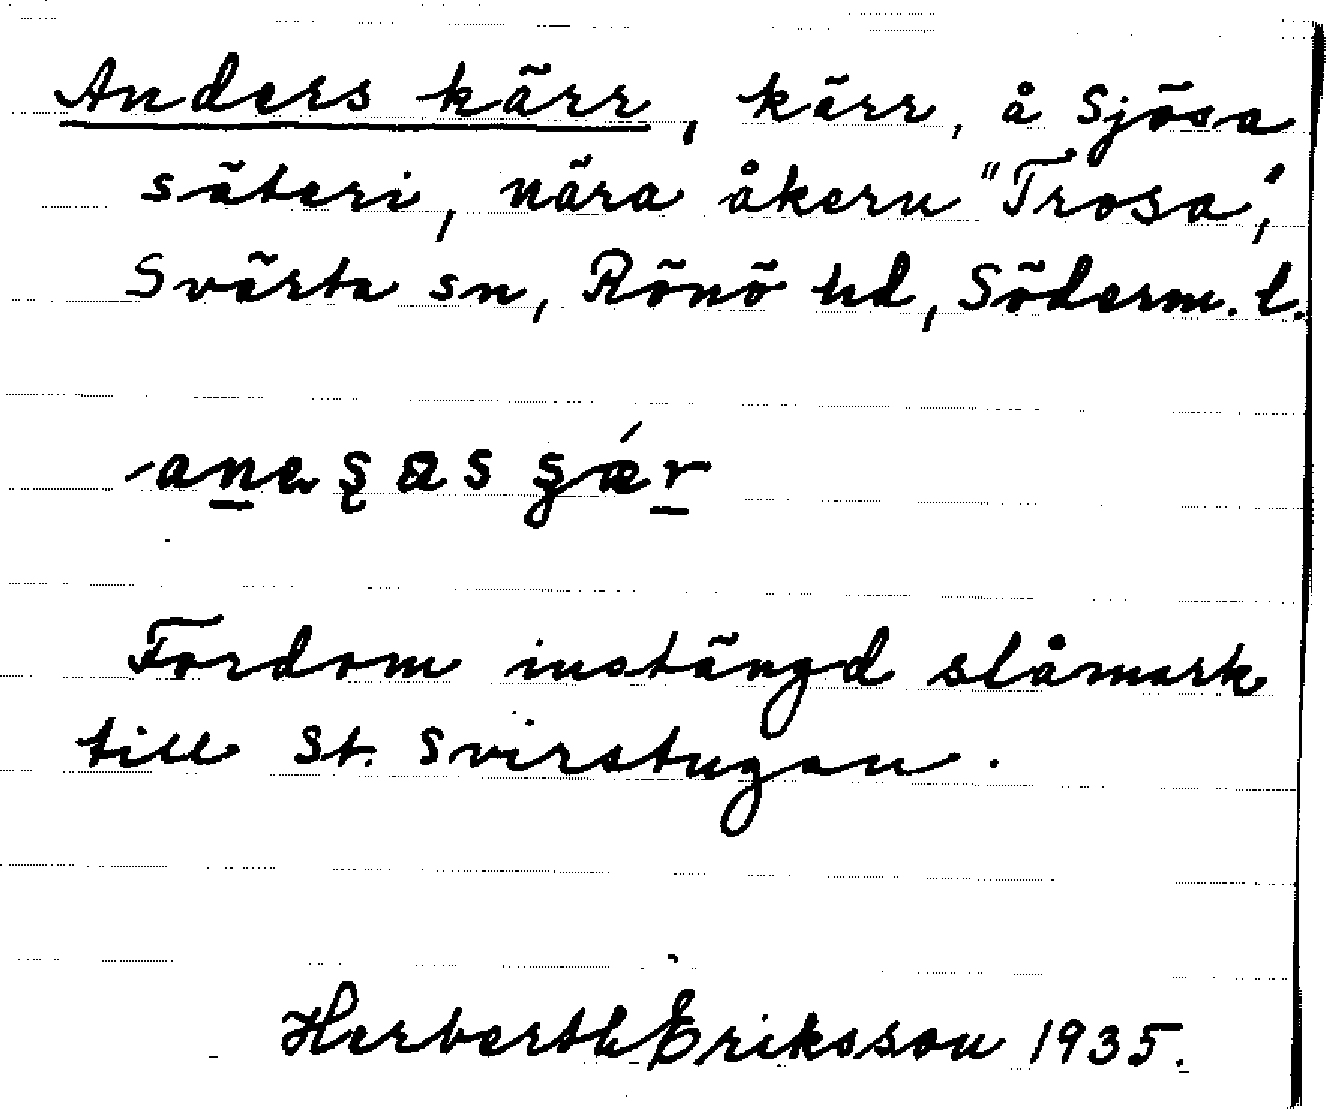 Anders kärr, kärr, å Sjösa
säteri, nära åkern "Trosa",
Svärta sn, Rönö hd, Söderm. l.
Fordom instängd slåmark
till St. Svirstugan.
Herberth Eriksson 1935.